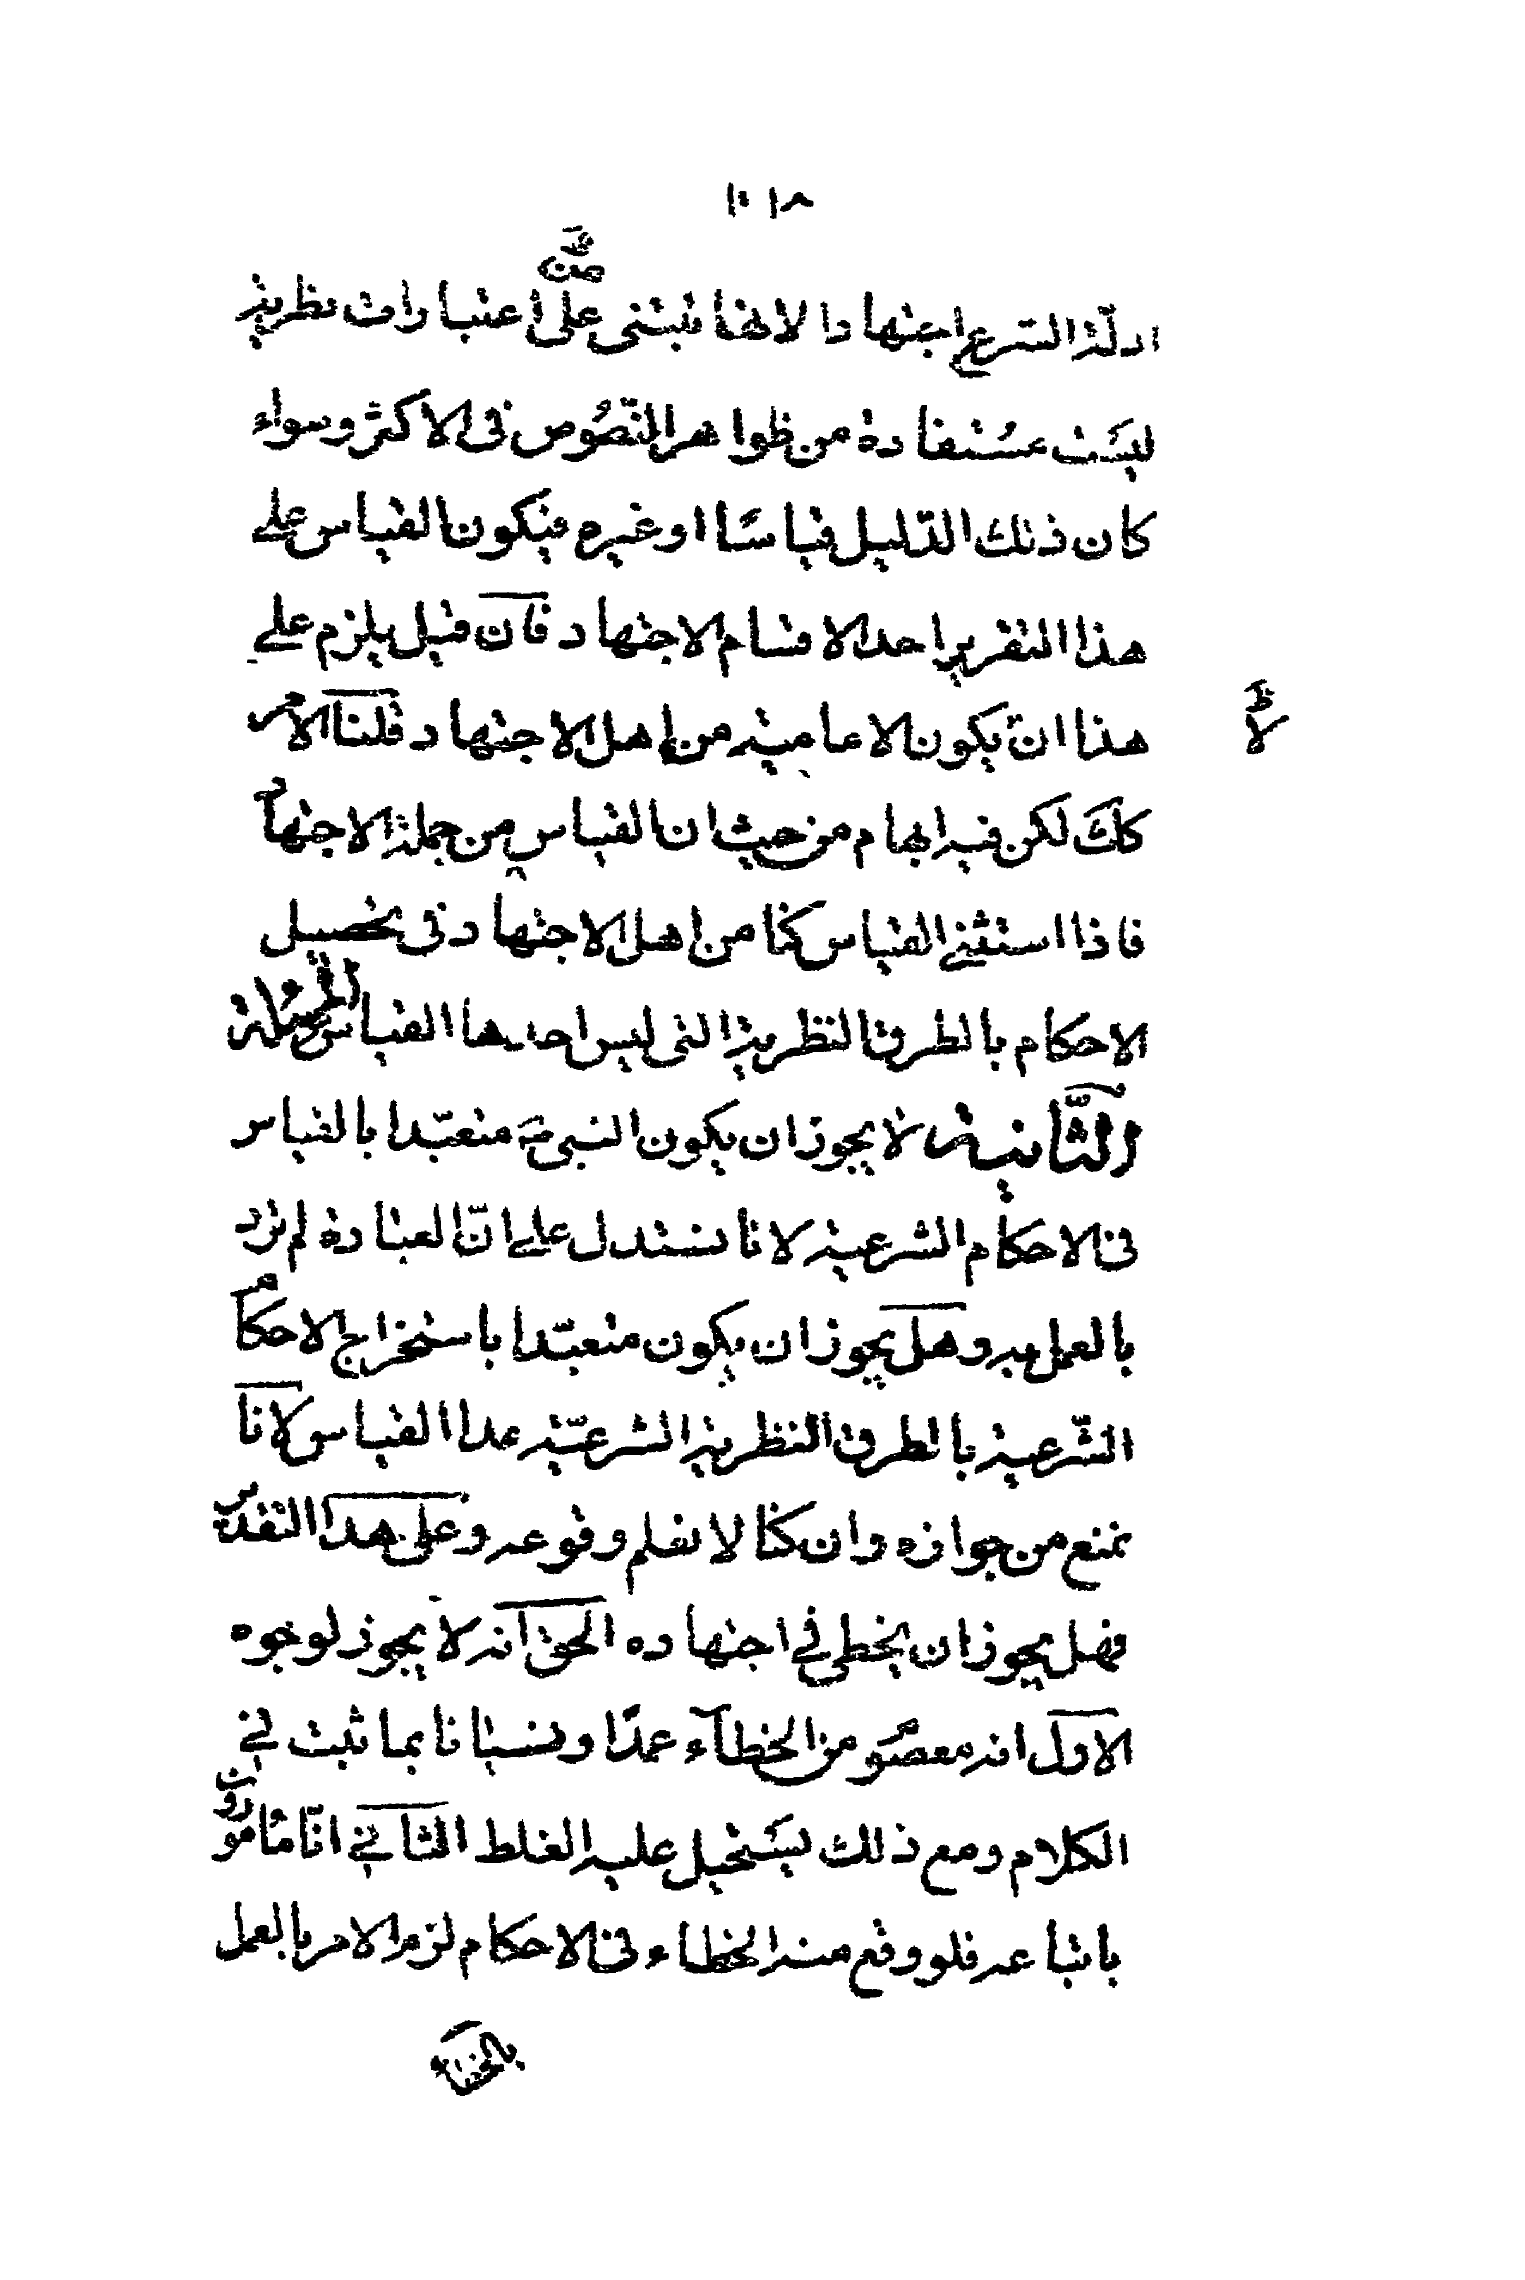 ادلة الشرع اجتهادا لانها تبتنى على اعتبارات نظرية
ليست مستفادة من ظواهر النصوص فى الاكثر وسواء
كان ذلك الدليل قياسا او غيره فيكون القياس على
هذا التقرير احد الاقسام الاجتهاد فان قيل يلزم على
هذا ان يكون الاعامية من اهل الاجتهاد قلنا الامر
كك لكن فيه ايهام من حيث ان القياس من جملة الاجتهاد
فاذا استثنى القياس كنا من اهل الاجتهاد فى تحصيل
الاحكام بالطرق النظرية التى ليس احدها القياس
الثانية لا يجوز ان يكون النبى متعبدا بالقياس
فى الاحكام الشرعية لانا نستدل على ان العبادة لم ترد
بالعمل به وهل يجوز ان يكون متعبدا باستخراج الاحكام
الشرعية بالطرق النظرية الشرعية عدا القياس لانا
نمنع من جوازه وان كنا لا نعلم وقوعه وعلى هذا التقدير
فهل يجوز ان يخطى فى اجتهاده الحق انه لا يجوز لوجوه
الاول انه معصوم من الخطآء عمدا ونسيانا بما ثبت فى
الكلام ومع ذلك يستحيل عليه الغلط الثانى انا مامورون
باتباعه فلو وقع منه الخطاء فى الاحكام لزم الامر بالعمل
بالخطاء